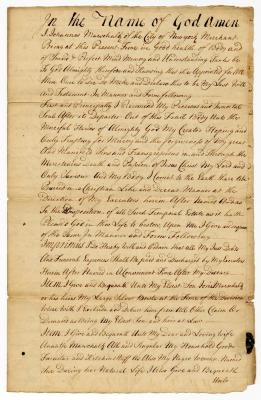 In the Name of God Amen
I Johannes Marschalk of the City of New york Merchant
Being at this Present Time in Good health of Body and
of Sound & Perfect Mind Memory and Understanding thanks be
To God Almighty therefore and Knowing that it is Appointed for All
Men Once to Die Do Make and Declare this to be My Last Will
And Testament In Manner and Form following
First and Principally I Recommend My Precious and Immortal
Soul After its Departure Out of this Frail Body Unto the
Merciful Hands of Almighty God My Creator Hoping and
Only Trusting for Mercy and the forgiveness of my great
And Manifold Sins and Transgressions in and through the
Meritorious Death and Passion of Jesus Christ My Lord and
Only Saviour And My Body I Commit to the Earth there to be
Buried in a Christian Like and Decent Manner at the
Direction of My Executors herein After Named And as
To the Disposition of all Such Temporal Estate as it hath
Pleased God in this Life to bestow Upon Me I Give and Dispose
of the Same In Manner and Form Following
Imprimis I Do Hereby Will and Ordain that all My Just Debts
And Funeral Expences Shall be Paid and Discharged by My Executors
Herein After Named in A Convenient Time After My Decease
Item I Give and Bequeath Unto My Eldest Son John Marschalk
or his heirs My Large Dutch Bible at the Time of the Division
Demands as Being My Eldest Son and heir at Law
Item I Give and Bequeath Unto My Dear and Loving Wife
Annatje Marschalk All and Singular My Household Goods
Furniture and Kitchen Stuff As Also My Negro Woman Named
During her Natural Life I Also Give and Bequeath
Unto